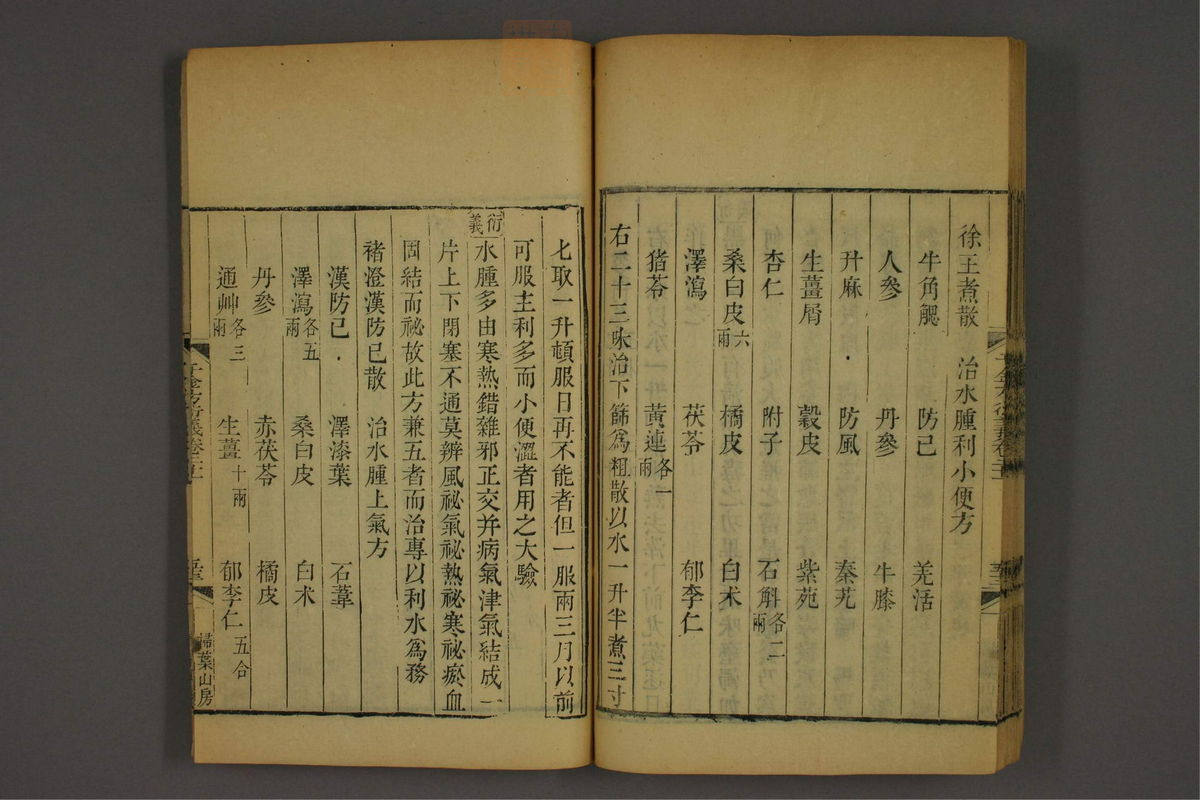 徐王煮散　治水腫利小便方
牛角䚡　防己　羌活
人參　丹參　牛膝
升麻　防風　秦艽
生薑屑　穀皮　紫菀
杏仁　附子　石斛各二兩
桑白皮六兩　橘皮　白朮
澤瀉　茯苓　郁李仁
猪苓　黃連各一兩
右二十三味治下篩爲粗散以水一升半煮三寸
匕取一升頓服日再不能者但一服兩三月以前
可服主利多而小便澀者用之大驗
衍義　水腫多由寒熱錯雜邪正交并病氣津氣結成一
片上下閉塞不通莫辨風祕氣祕熱祕寒祕瘀血
固結而祕故此方兼五者而治專以利水爲務
褚澄漢防已散　治水腫上氣方
漢防已　澤漆葉　石葦
澤瀉各五兩　桑白皮　白朮
丹參　赤茯苓　橘皮
通艸各三兩　生薑十兩　郁李仁五合
千金方衍義卷二十一
掃葉山房